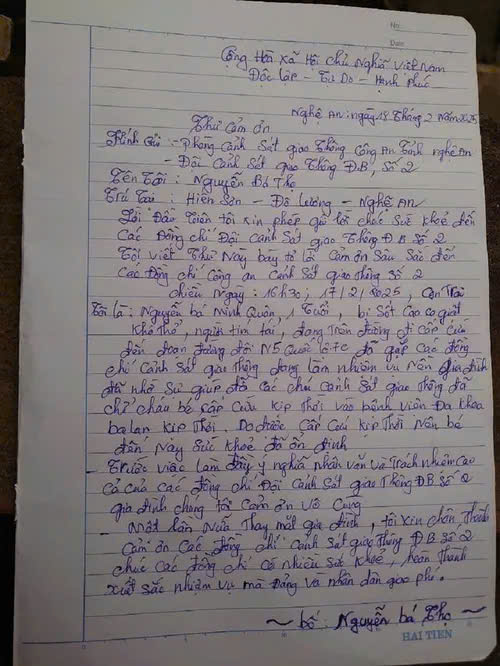 No:
Date
Cộng Hòa Xã Hội Chủ Nghĩa Việt Nam
Độc lập - Tự Do - Hạnh Phúc
Nghệ An: ngày 18 Tháng 2 Năm 2025
Thư Cảm ơn
Kính Gửi: - Phòng Cảnh Sát giao Thông Công An Tỉnh nghệ An
- Đội Cảnh Sát giao Thông Đ.B, Số 2
Tên Tôi : Nguyễn Bá Thọ
Trú Tại : Hiến Sơn - Đô Lương - Nghệ An
Lời Đầu Tiên tôi xin phép gửi lời chúc Sức khoẻ đến
Các Đồng chí Đội Cảnh Sát giao Thông Đ B Số 2
Tôi viết Thư Này bày tỏ lời Cảm ơn Sâu Sắc đến
Các Động chí Công an Cảnh Sát giao thông Số 2
chiều Ngày : 16h30 , 17/2/2025 , Con Trai
Tôi là : Nguyễn bá Minh Quân , 1 Tuổi , bị Sốt Cao co giật
Khó Thở , người tím tái , đang Trên đường đi Cấp Cứu
đến đoạn đường đôi N5 Quốc lộ 7c đã gặp Các đồng
chí Cảnh Sát giao Thông đang làm nhiệm vụ Nên gia đình
đã nhờ Sự giúp đỡ Các chú Cảnh Sát giao Thông đã
chở cháu bé Cấp Cứu Kịp Thời vào bệnh viện Đa Khoa
ba lan Kịp Thời . Do được Cấp Cứu Kịp Thời Nên bé
đến Này Sức Khoẻ đã ổn định
Trước việc làm đầy ý nghĩa Nhân văn và Trách Nhiệm Cao
Cả của Các đồng chí Đội Cảnh Sát giao Thông ĐB Số 2
gia đình chúng tôi Cảm ơn vô Cùng
Một lần Nữa Thay mặt gia đình , tôi xin chân Thành
Cảm ơn Các đồng chí Cảnh Sát giao Thông Đ B Số 2
chúc Các đồng chí Có nhiều Sức Khoẻ , hoàn Thành
xuất Sắc nhiệm vụ mà Đảng và nhân dân giao phó.
~ bố : Nguyễn bá Thọ ~
HẢI TIẾN